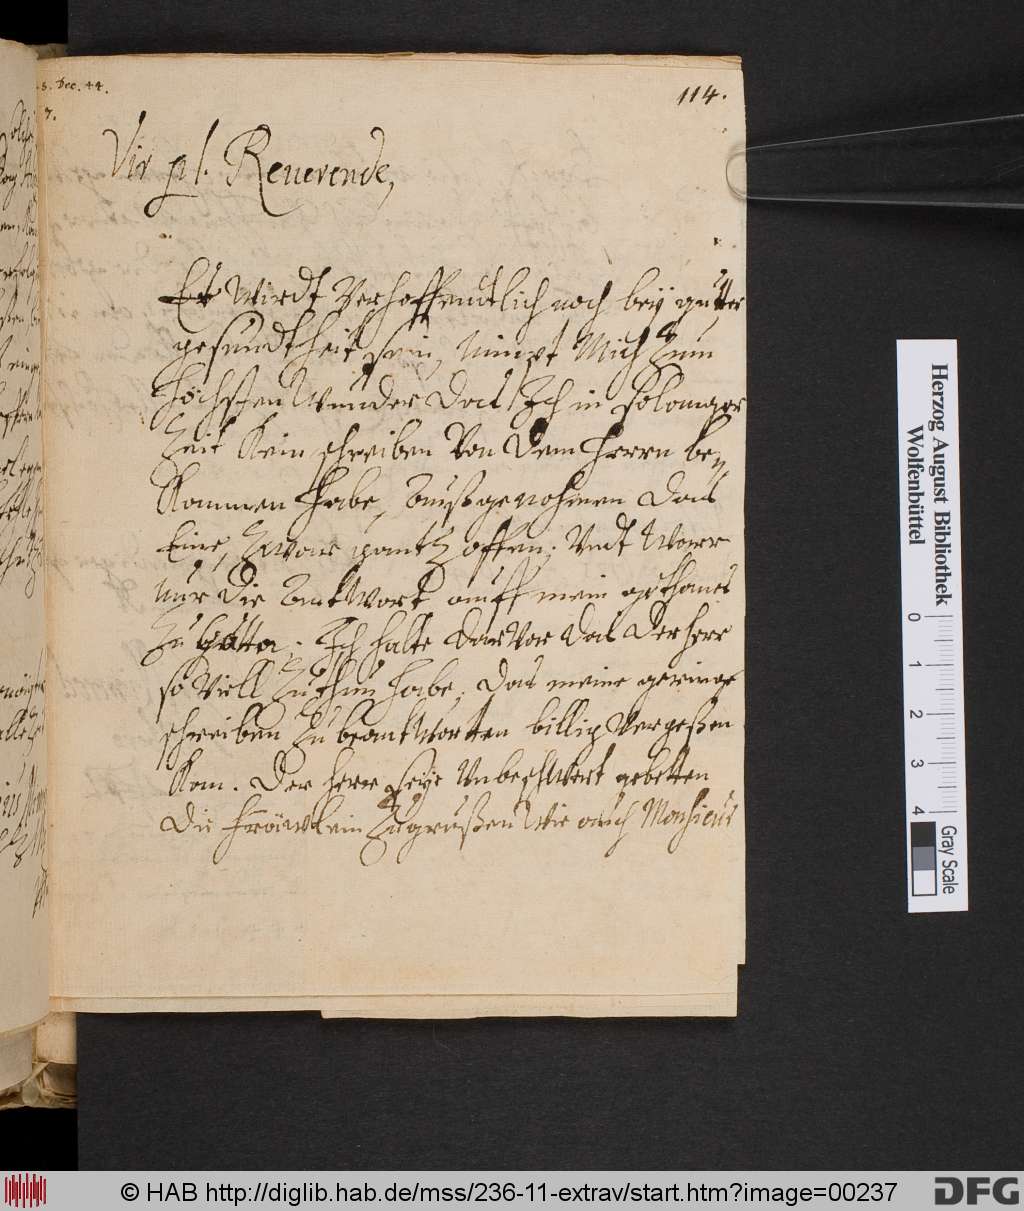 8. Dec. 44.
7.
114.
Vir pl. Reuerende,
Er Wirdt Verhoffendtlich noch bey gutter
gesundtheit sein, Nimpt Mich Zum
höchsten Wunder Das Ich in so langer
Zeit Kein schreiben Von Dem herrn be,
Kommen habe, außgenohmen Das
Eine, Zwar gantz offen; Vndt Warr
Nur Die Antwort auff mein gethanes
Zu. Ich halte Darvor Das Der herr
so Viell Zu thun habe. Das meine geringe
schreiben Zu beantworten billig Vergeßen
Kan. Der herr seye Vnbeschwert gebetten
Die fräwlein Zu grußen Wie auch Monsieur
Herzog August Bibliothek
Wolfenbüttel
0 1 2 3 4
Gray Scale
© HAB http://diglib.hab.de/mss/236-11-extrav/start.htm?image=00237
DFG